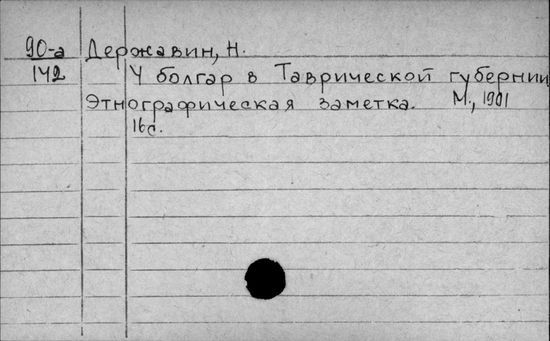 90-а Державин, Н.
142 У болгар в Таврической губернии
Этнографическая заметка. М., 1901
16с.